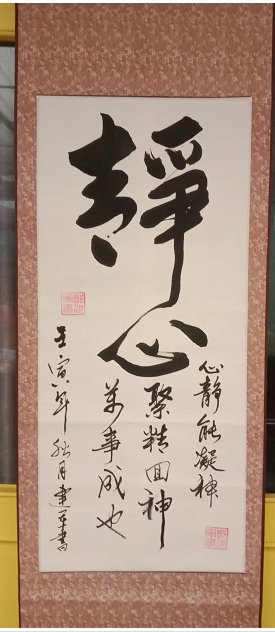 靜心
心静能凝神
聚精回神
萬事成也
壬寅年秋月建平書